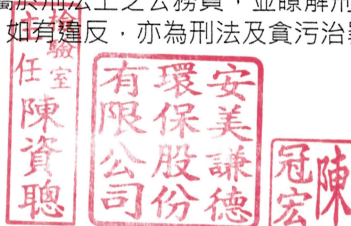 屬於刑法上之公務員，並瞭解刑
如有違反，亦為刑法及貪污治
檢驗室
主任陳資聰
安美謙德
環保股份
有限公司
陳
冠宏